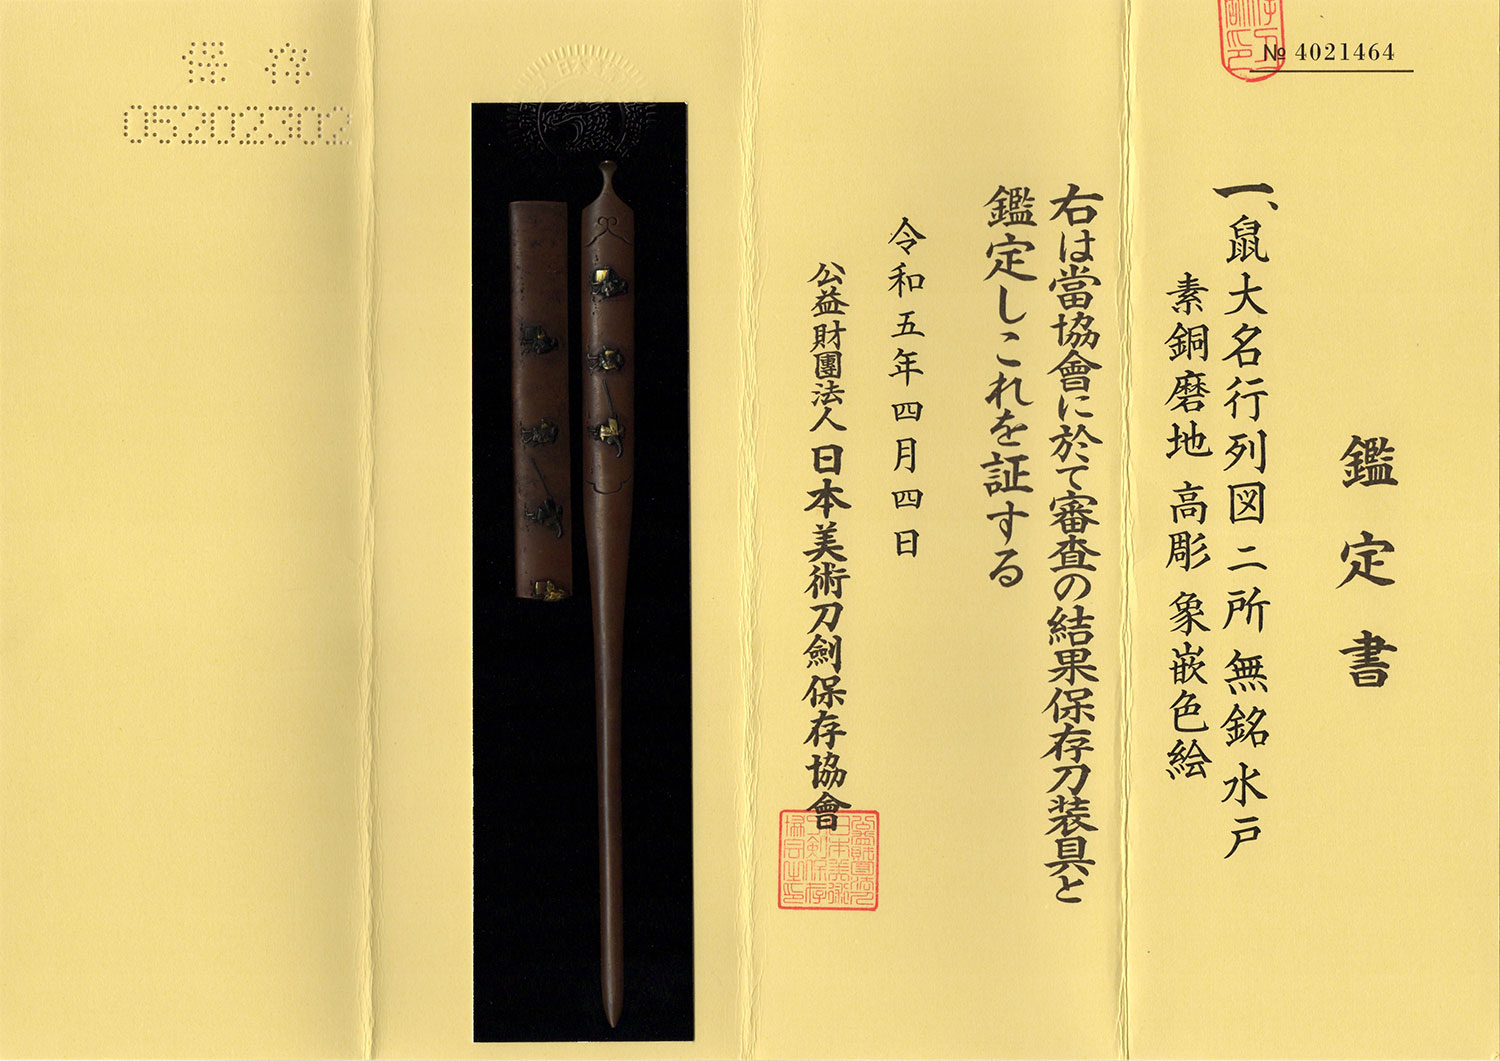 № 4021464
鑑定書
一、鼠大名行列図二所 無銘 水戸
素銅磨地 高彫 象嵌色絵
右は當協會に於て審査の結果保存刀装具と
鑑定しこれを証する
令和五年四月四日
公益財團法人 日本美術刀劍保存協會
保存
05202302